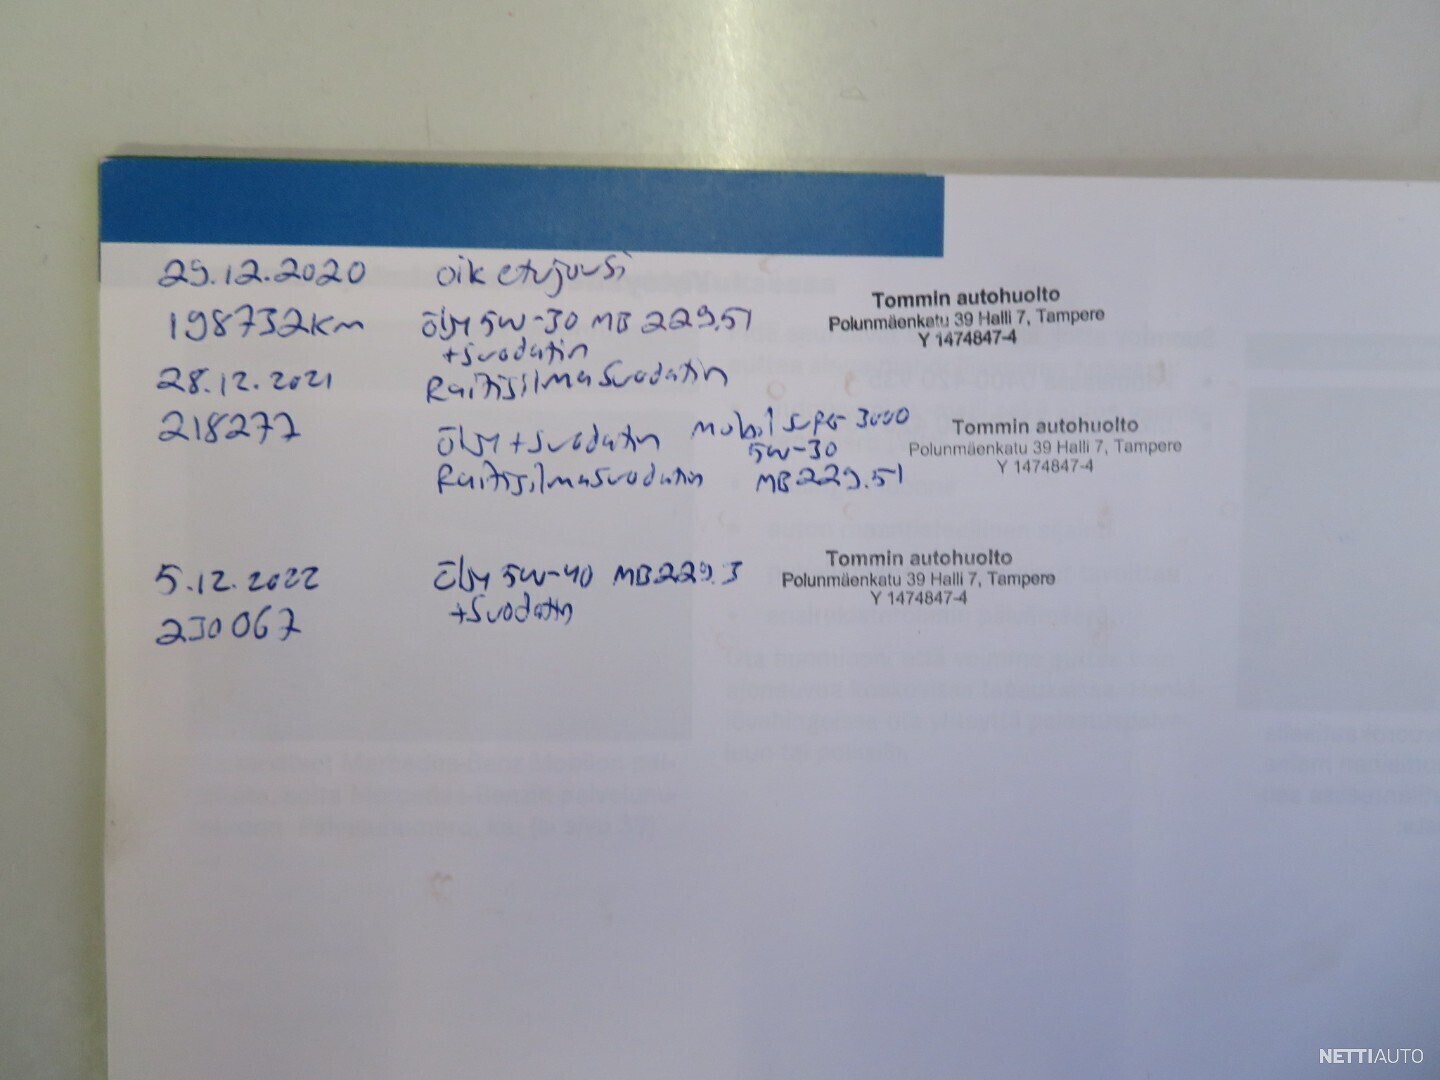 29.12.2020 Oik etujousi
198732km Öljy 5W-30 MB 229.51
+suodatin
Tommin autohuolto
Polunmäenkatu 39 Halli 7, Tampere
Y 1474847-4
Raitisilmasuodatin
28.12.2021
218277 Öljy + suodatin Mobil Super 3000
5W-30
Raitisilmasuodatin MB 229.51
Tommin autohuolto
Polunmäenkatu 39 Halli 7, Tampere
Y 1474847-4
5.12.2022 Öljy 5W-40 MB 229.3
+suodatin
230067
Tommin autohuolto
Polunmäenkatu 39 Halli 7, Tampere
Y 1474847-4
NETTIAUTO